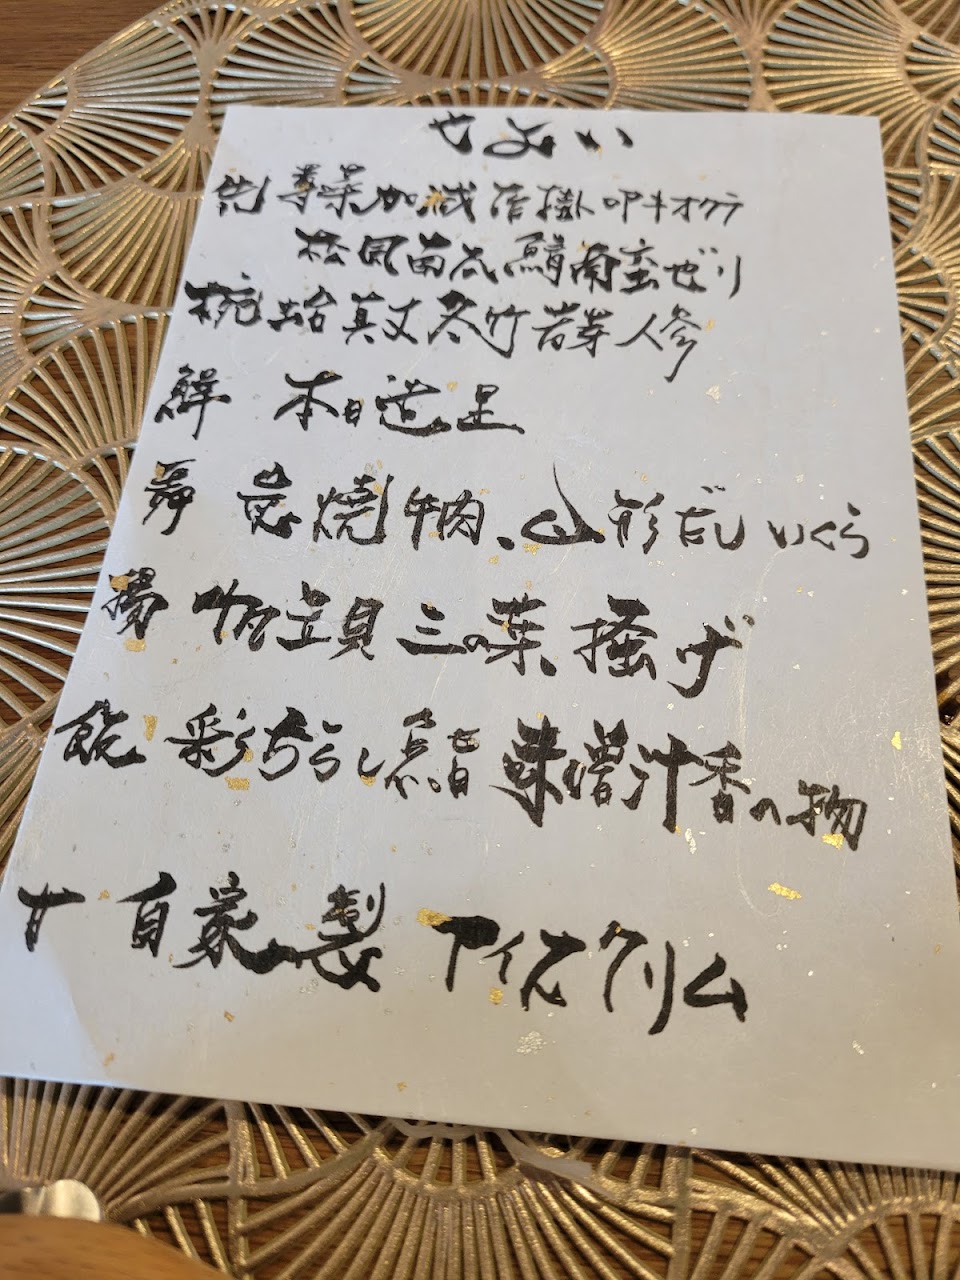 やよい
先 蓴菜加減酢掛ト叩キオクラ
松風 鯖南蛮ぜり
椀 蛤真丈 冬竹 若芽 人参
鮮 本日 呈
炭焼牛肉、山形だし いくら
揚 帆立貝 三つ葉 掻げ
飯 彩りちらし寿し 味噌汁 香の物
甘 自家製 アイスクリム